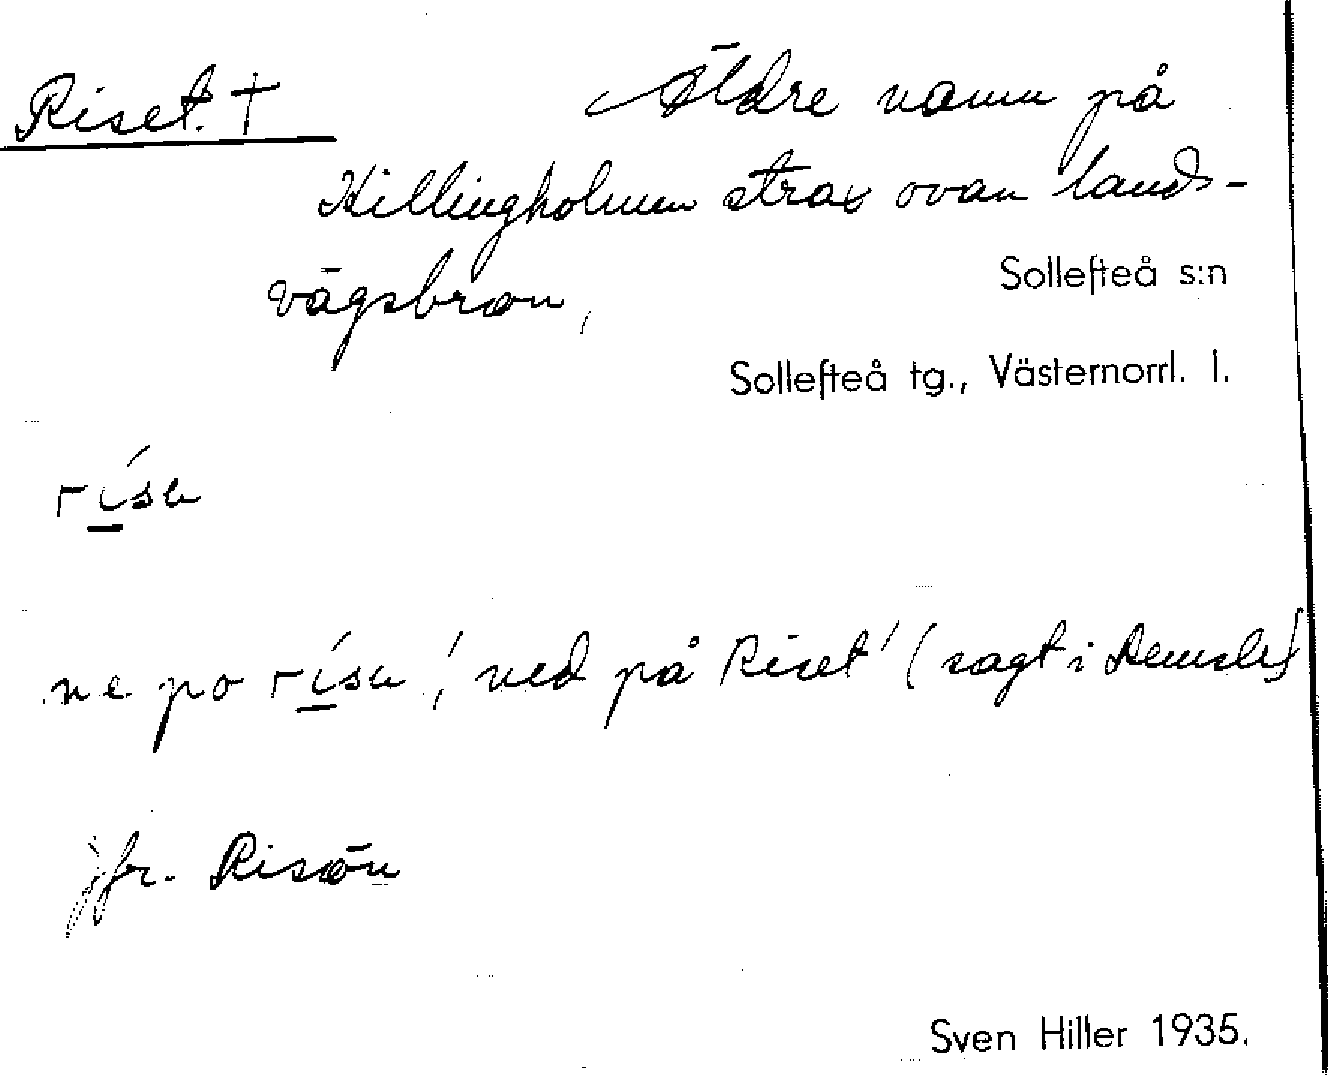 Riset. † Äldre namn på
Killingholmen strax ovan lands-
vägsbron,
Sollefteå s:n
Sollefteå tg., Västernorrl. l.
rísu
ne po rísu, 'ned på Riset' (sagt i Remsle)
jfr. Risön
Sven Hiller 1935.